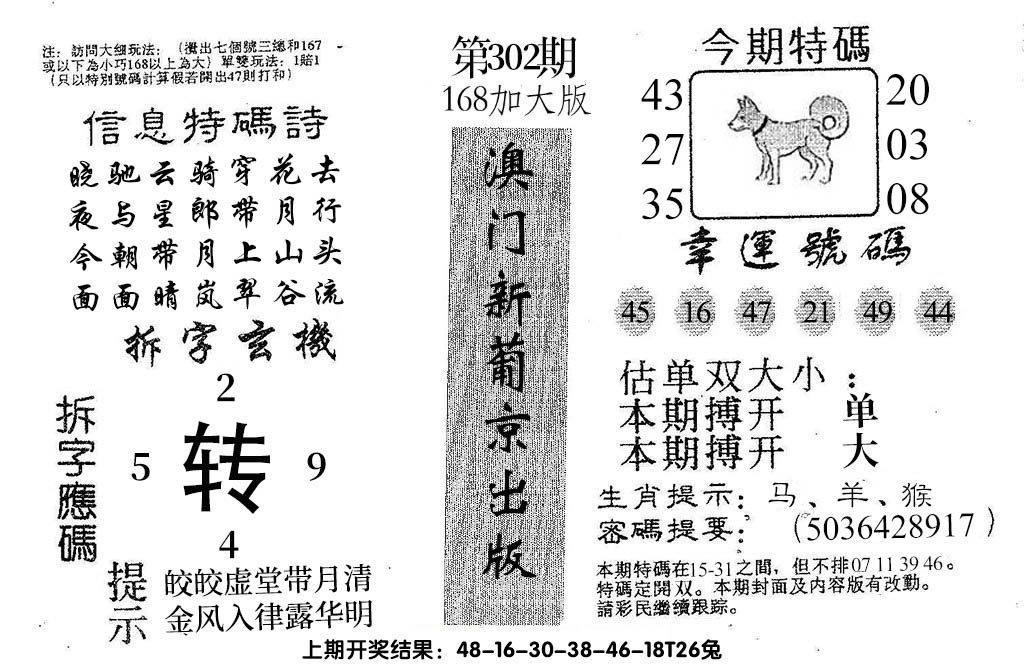 注：訪問大细玩法：（攪出七個號三總和167
或以下為小巧168以上為大）單雙玩法：1賠1
（只以特別號碼計算假若開出47則打和）
信息特碼詩
晓驰云骑穿花去
夜与星郎带月行
今朝带月上山头
面面晴岚翠谷流
拆字玄機
拆字應碼
2
5 转 9
4
提示
皎皎虚堂带月清
金风入律露华明
第302期
168加大版
澳门新葡京出版
今期特碼
43 20
27 03
35 08
幸運號碼
45 16 47 21 49 44
估单双大小：
本期搏开 单
本期搏开 大
生肖提示：马、羊、猴
密碼提要：（5036428917）
本期特碼在15-31之間，但不排07 11 39 46。
特碼定開双。本期封面及内容版有改動。
請彩民繼續跟踪。
上期开奖结果：48-16-30-38-46-18T26兔